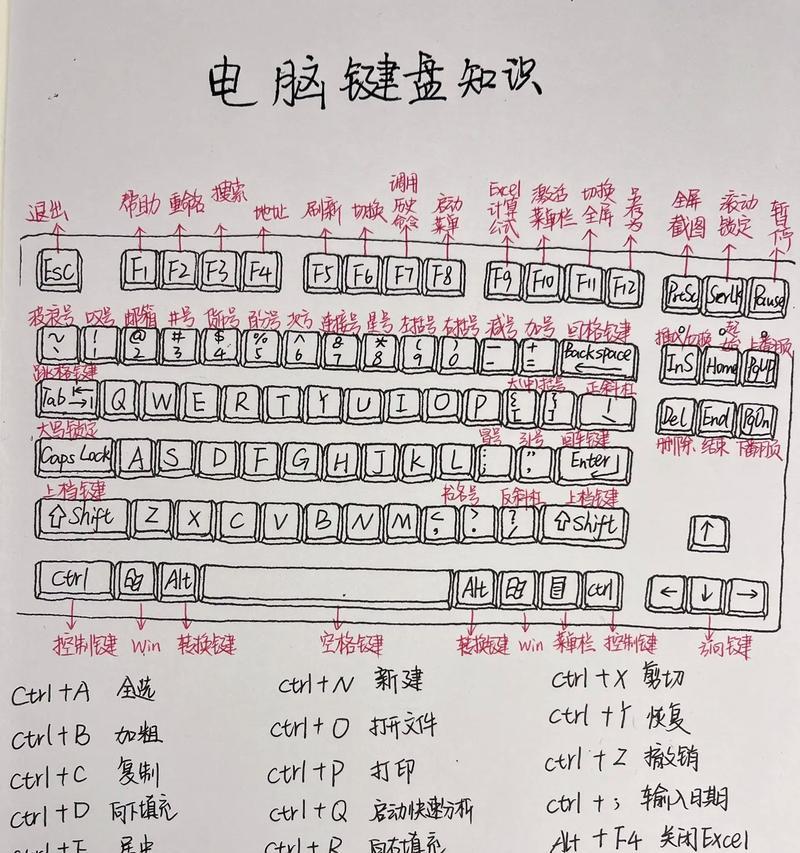 电脑键盘知识
退出 帮助 重命名 搜索 地址 刷新 切换 调用历史命令 启动菜单 Excel计算公式 激活菜单栏 切换全屏 另存为 全屏截图 滚动锁定 暂停
Esc F1 F2 F3 F4 F5 F6 F7 F8 F9 F10 F11 F12 PrtSc ScrLk Pause
波浪号 叹号 邮箱 #号 货币号 百分号 次方 连接号 星号 左括号 右括号 减号 加号 回格键 插入/切换 上翻页
~ ` ! 1 @ 2 # 3 $ 4 % 5 ^ 6 & 7 * 8 ( 9 ) 0 - + = Backspace InS Home PgUP
跳格键 大(中)括号 正斜杠
Tab Q W E R T Y U I O P { [ } ] Del End PgDn
大写锁定 冒号 引号 回车键 删除 结束 下翻页
Caps Lock A S D F G H J K L : ; " ' Enter
上档键 书名号 反斜杠 上档键
⇧Shift Z X C V B N M < , > . ? / ⇧Shift ↑
Ctrl Alt Alt Ctrl ← ↓ →
控制键 Win 转换键 空格键 转换键 Win 菜单栏 控制键 方向键
Ctrl+A 全选 Ctrl+N 新建 Ctrl+X 剪切
Ctrl+B 加粗 Ctrl+O 打开文件 Ctrl+Y 恢复
Ctrl+C 复制 Ctrl+P 打印 Ctrl+Z 撤销
Ctrl+D 向下填充 Ctrl+Q 启动快速分析 Ctrl+; 输入日期
Ctrl+E 居中 Ctrl+R 向右填充 Alt+F4 关闭Excel